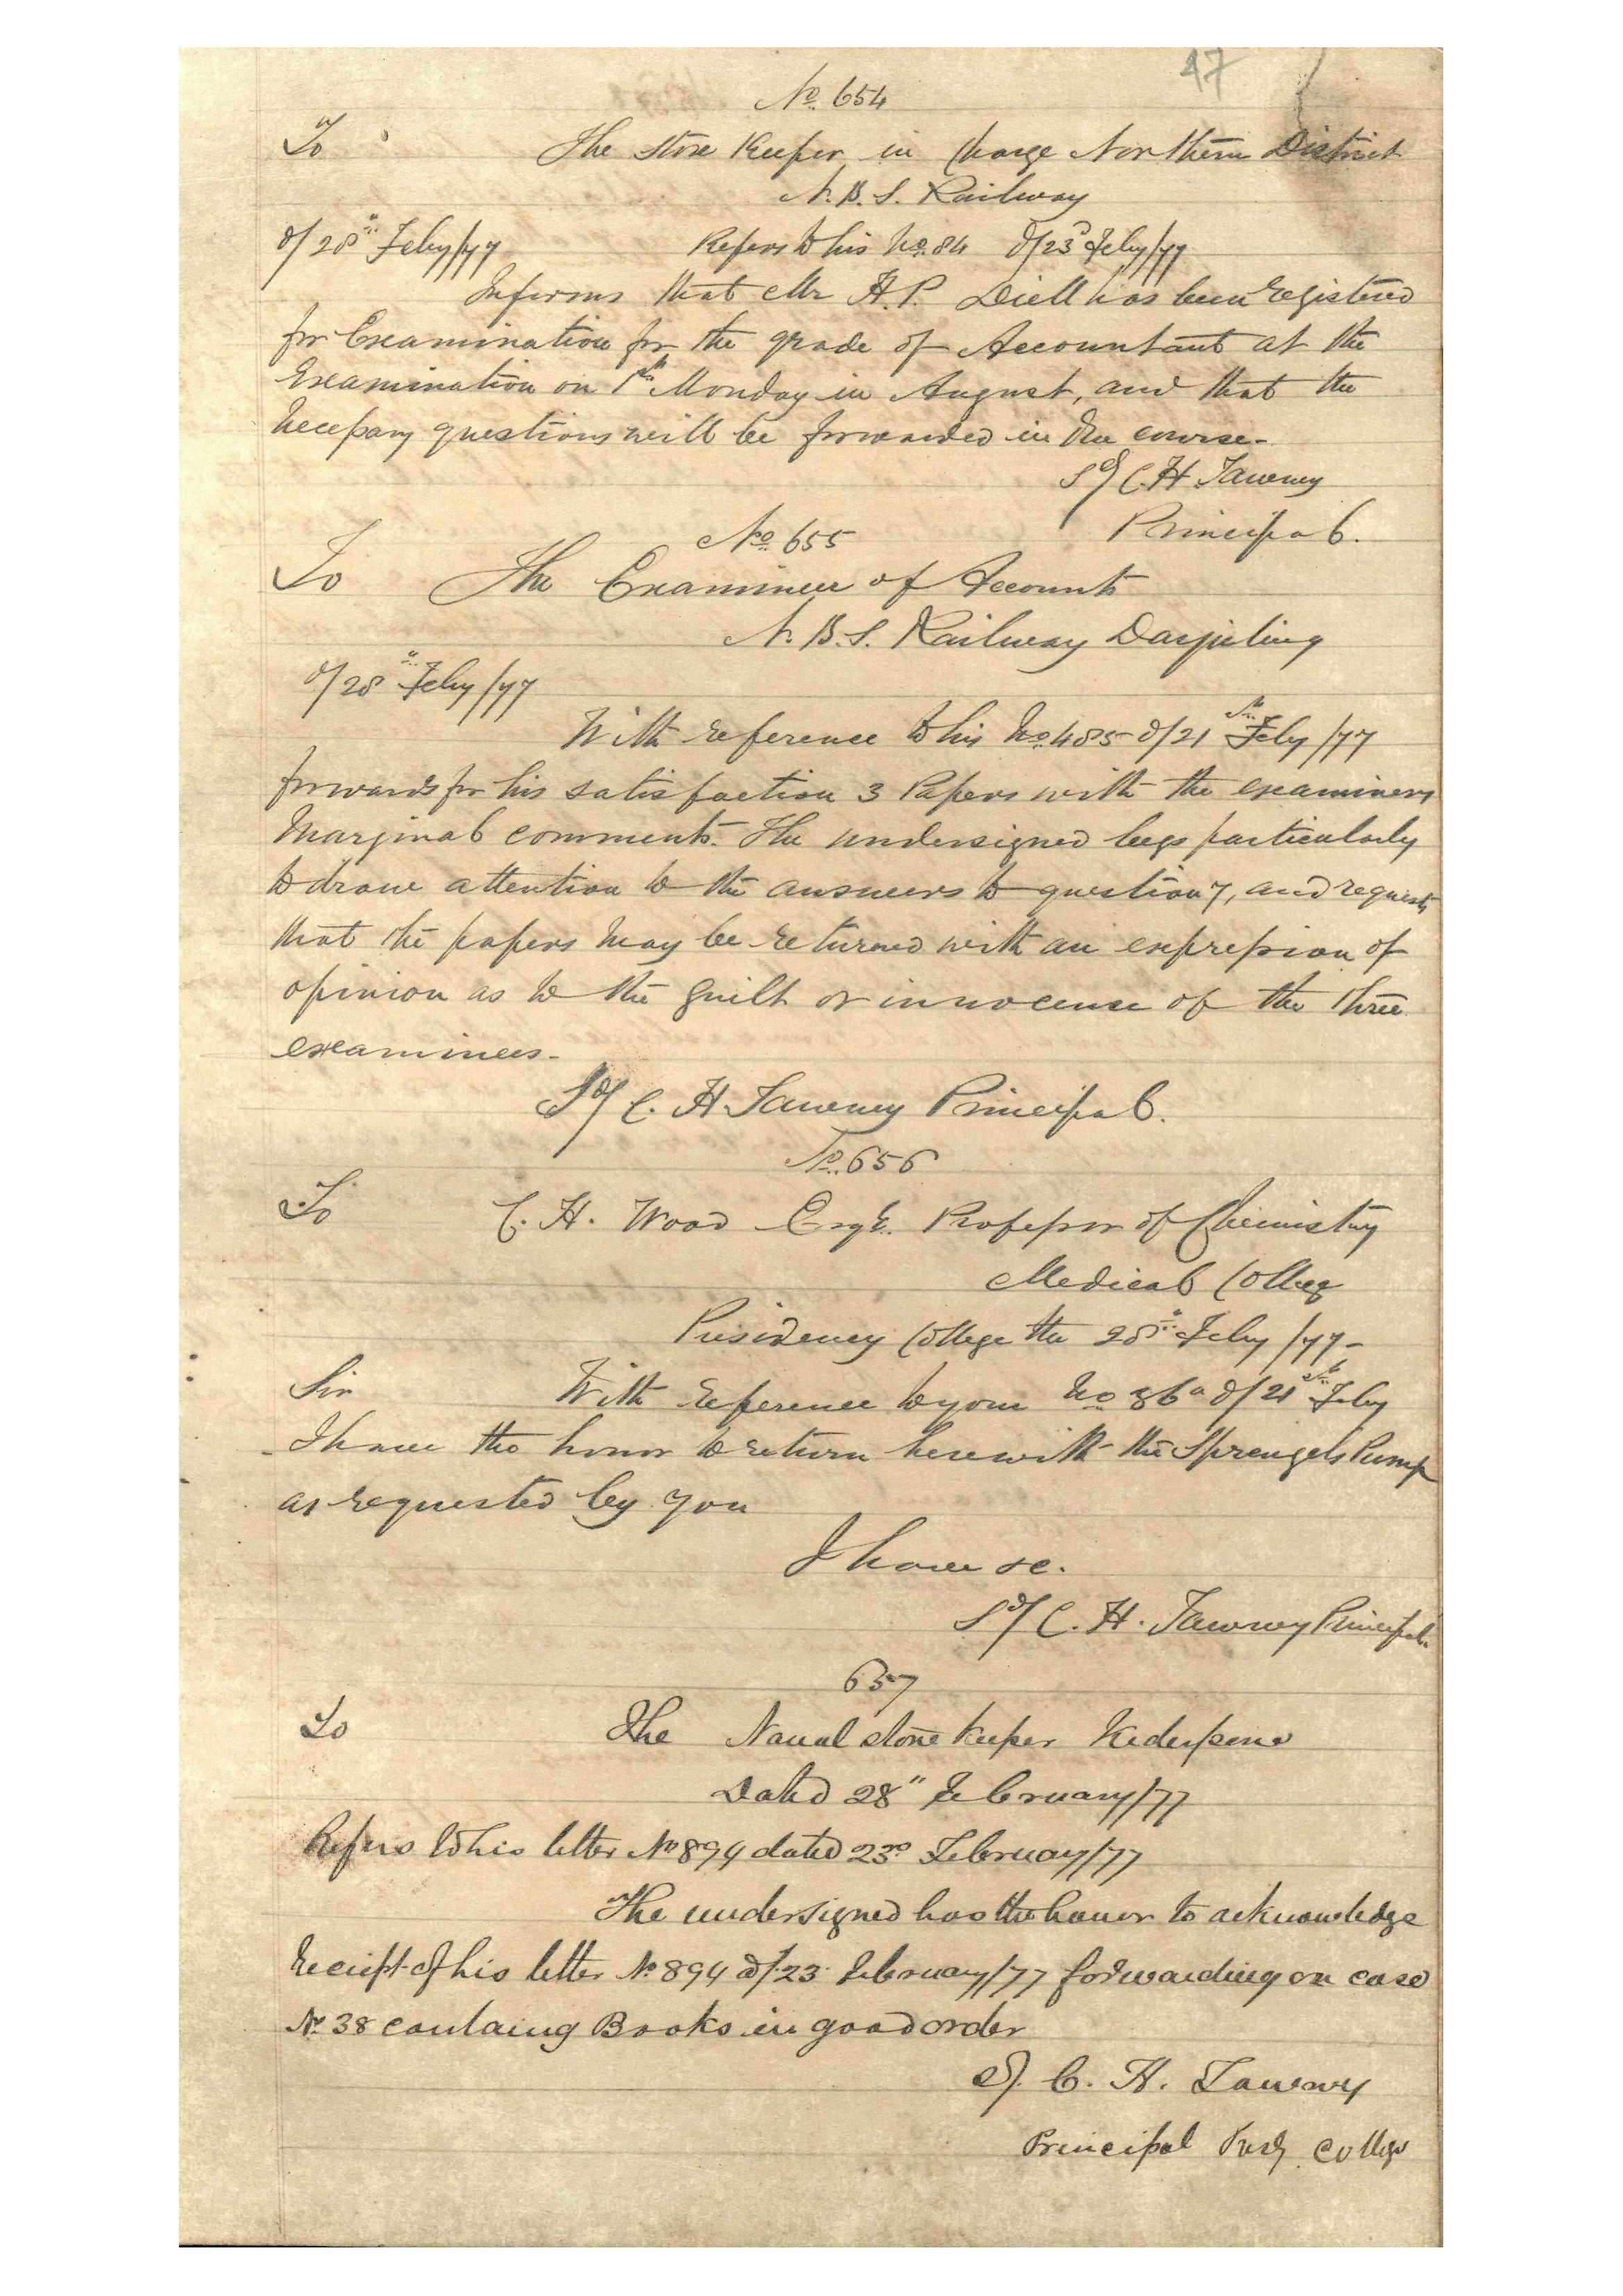 47
No. 654
To The Store Keeper in charge Northern District
N. B. S. Railway
d/28th Feby/77 Refers to his No. 84 d/23d Feby/77
Informs that Mr H. P. has been registered
for Examination for the grade of Accountant at the
Examination on 1st Monday in August, and that the
necessary questions will be forwarded in due course-
Sd/ C. H Tawney
Principal.
No. 655
To The Examiner of Accounts
N. B. S. Railway Darjeeling
d/28th Feby/77
With reference to his No. 485 d/21st Feby/77
forwards for his satisfaction 3 Papers with the examiners
Marginal comments. The undersigned begs particularly
to draw attention to the answers to question 7, and requests
that the papers may be returned with an expression of
opinion as to the guilt or innocence of the three
examinees-
Sd/ C. H Tawney Principal.
No. 656
To C. H. Wood Esqr. Professor of Chemistry
Medical College
Presidency College the 28th Feby/77-
Sir With reference to your No 36a d/21st Feby
I have the honor to return herewith the Sprengels Pump
as requested by you
I have &c.
Sd/ C. H. Tawney Principal.
657
To The Naval Store Keeper Kederpore
Dated 28" February/77
Refers to his letter No 894 dated 23d February/77
The undersigned has the honor to acknowledge
receipt of his letter No 894 d/23 February/77 forwarding on case
No 38 containg Books in good order
Sd. C. H. Tawney
Principal Presy. College